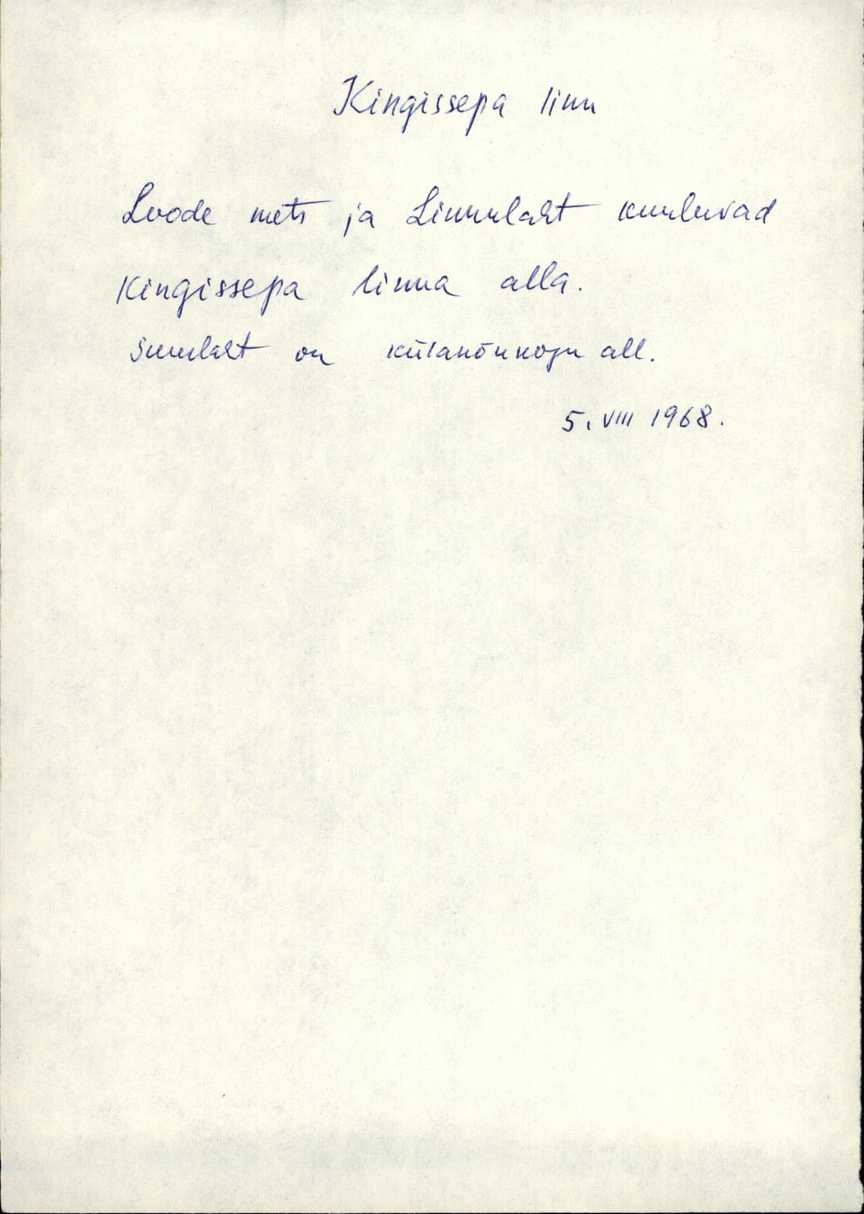 Kingissepa linn
Loode mets ja Linnulaht kuuluvad
Kingissepa linna alla.
Suurlaht on külanõukogu all.
5. VIII 1968.